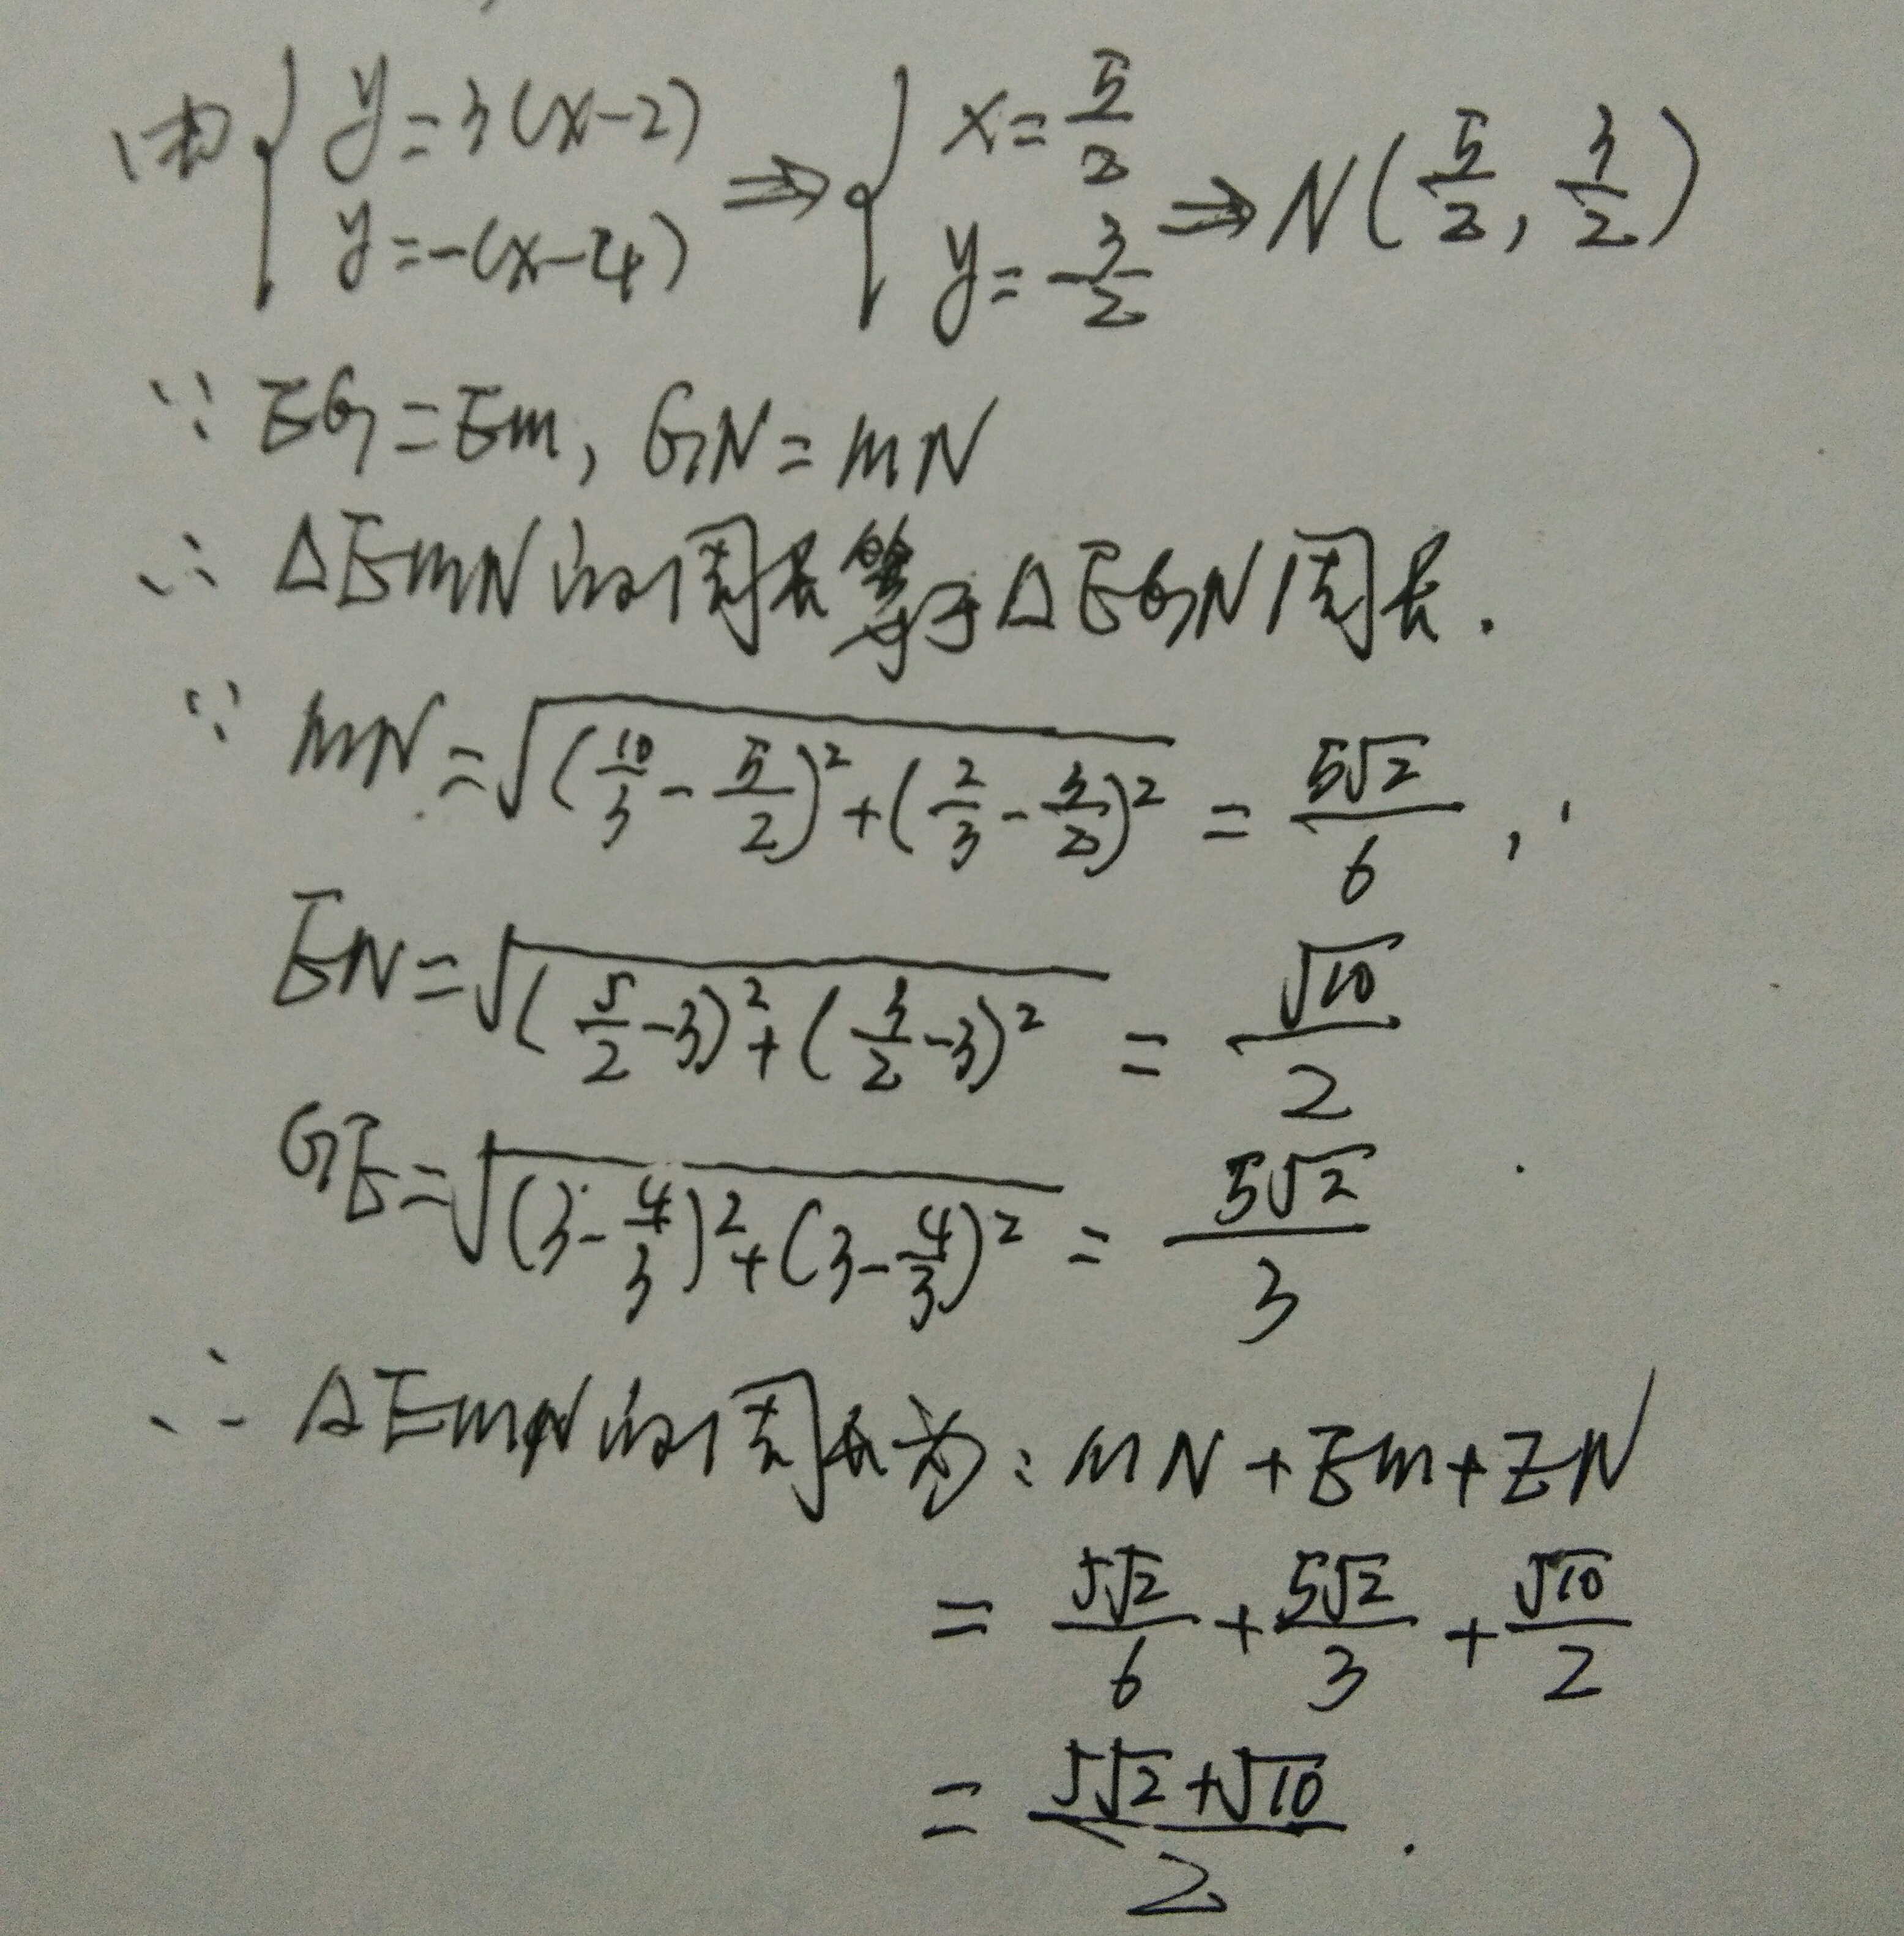 由{y=3(x-2) y=-(x-4) ⇒ {x=5/2 y=3/2 ⇒ N(5/2, 3/2)
∵ EG=EM, GN=MN
∴ △EMN的周长等于△EGN周长.
∵ MN=√((10/3-5/2)²+(2/3-3/2)²) = 5√2/6,
EN=√((5/2-3)²+(3/2-3)²) = √10/2
GE=√((3-4/3)²+(3-4/3)²) = 5√2/3
∴ △EMN的周长为: MN+EM+EN
= 5√2/6+5√2/3+√10/2
= (5√2+√10)/2.